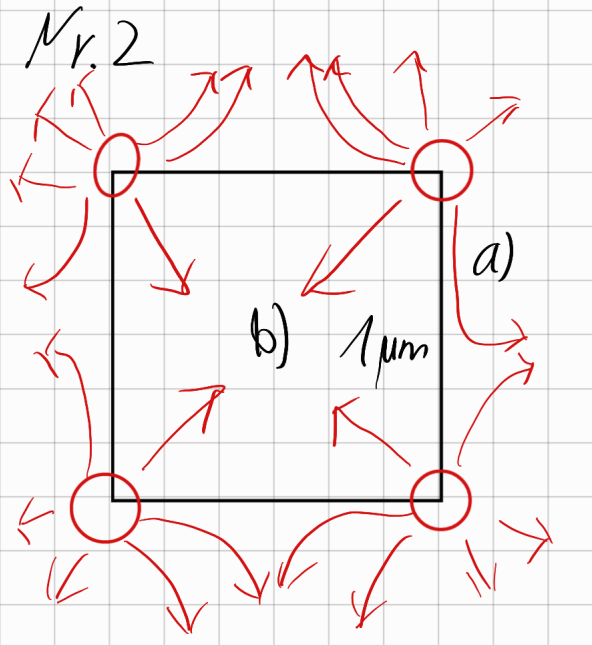 Nr. 2
a)
b) 1 μm